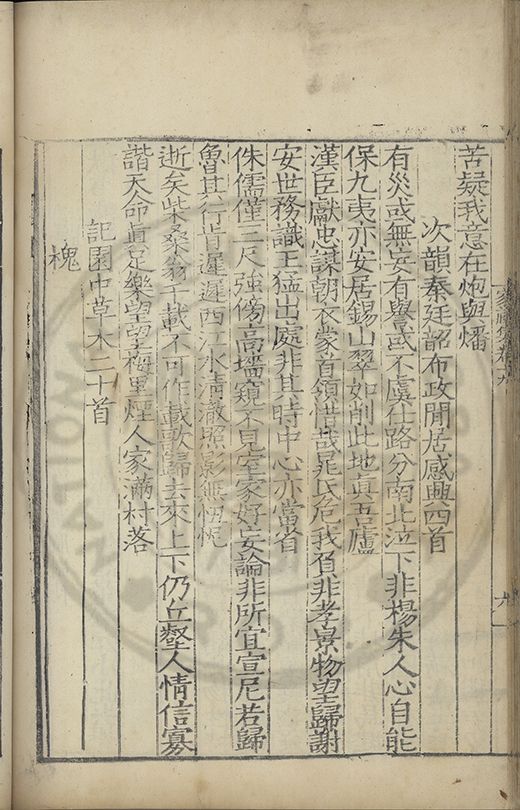 苦疑我意在炮與燔
次韻秦廷韶布政閒居感興四首
有災或無妄有譽或不虞仕路分南北泣下非楊朱人心自能
保九夷亦安居錫山翠如削此地真吾廬
漢臣獻忠謀朝衣蒙首領惜哉晁氏危我負非孝景物望歸謝
安世務識王猛出處非其時中心亦當省
侏儒僅三尺強傍高墻窺不見室家好妄論非所宜宣尼若歸
魯其行肯遲遲西江水清澈照影無忸怩
逝矣柴桑翁千載不可作載歌歸去來上下仍丘壑人情信寡
諧天命真足樂望望梅里煙人家滿村落
記園中草木二十首
槐